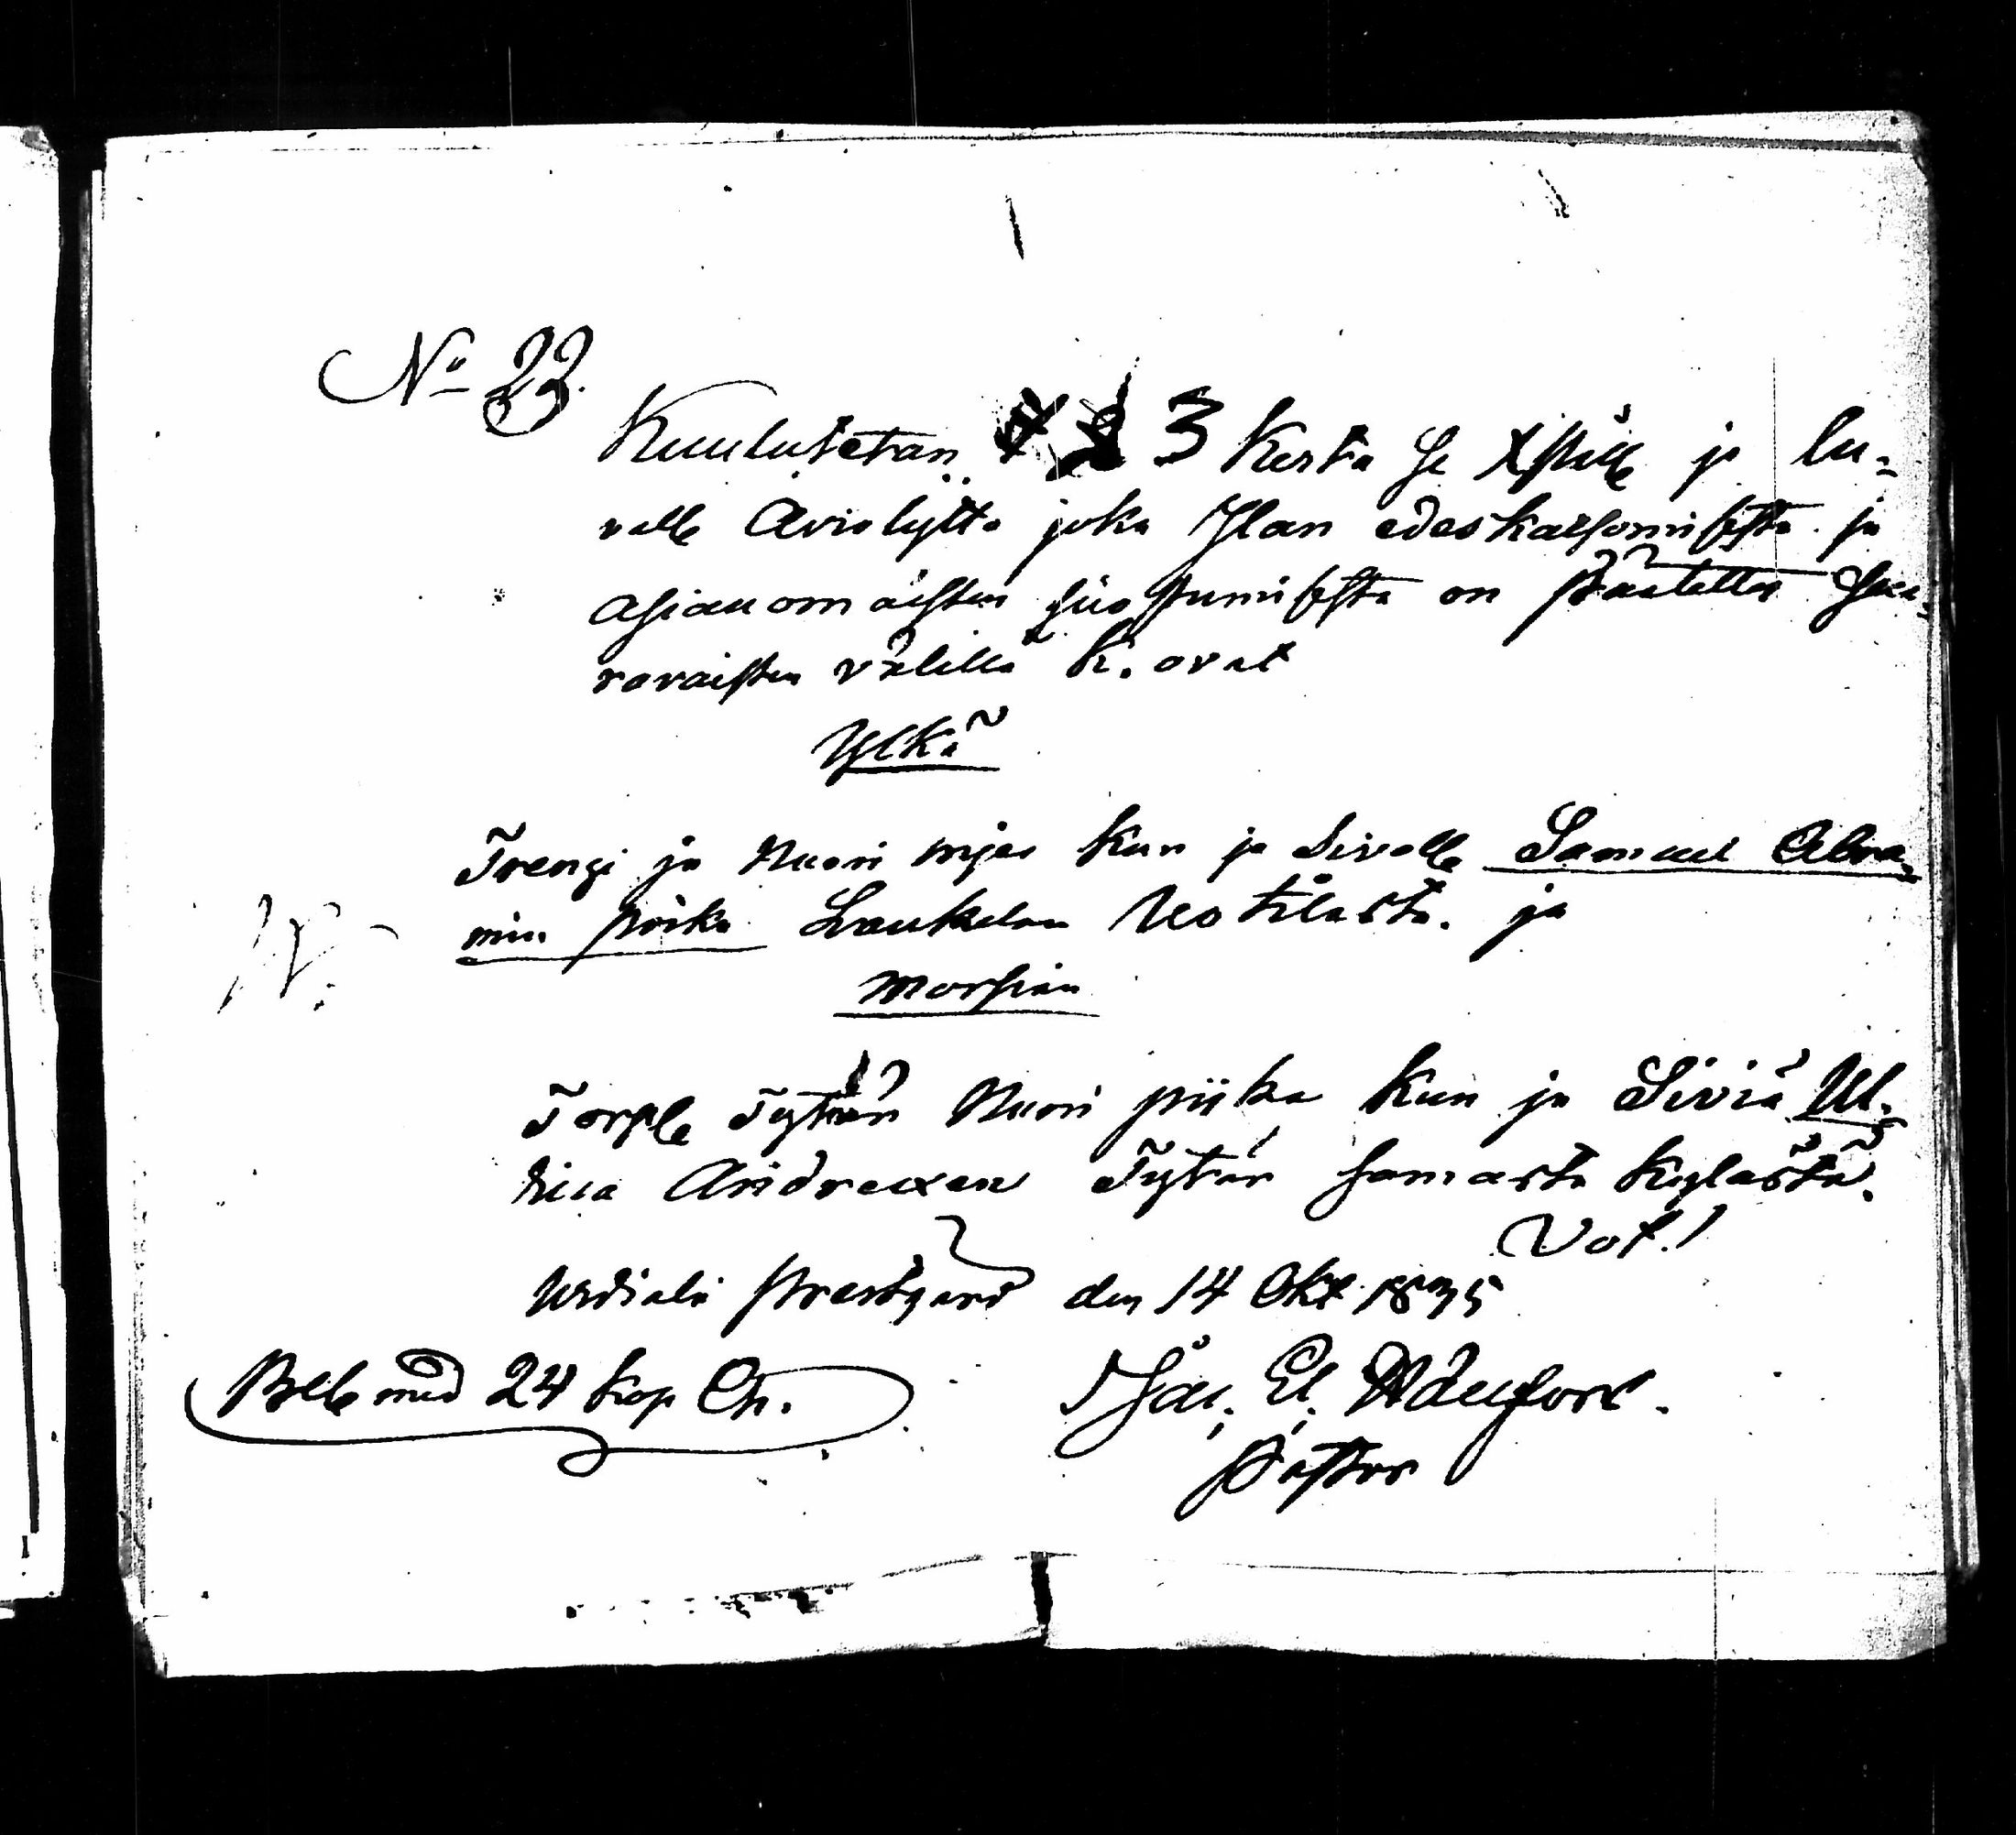 No 23.
Kuulutetan 1 2 3 Kerta se Xstill. ja lu-
valle Avio lijtto joka Ilan edeskatsomisesta ja
asian omaisten suostumisesta on päätetty Seu-
ravaisten välillä K. ovat
Ylkä
Trengi ja Nuori mjes Kun. ja Sivolle Samuel Abra-
min poika Laukelan Uotilasta. ja
Morsian
Torple Tytär Nuori piika Kun ja Siviä Ul-
rica Andrexen Tytär samasta Kylästä.
Vot.!
Urdiala Prestgård den 14 Okt 1835
Bet. med 24 kop Ch.
Pastor